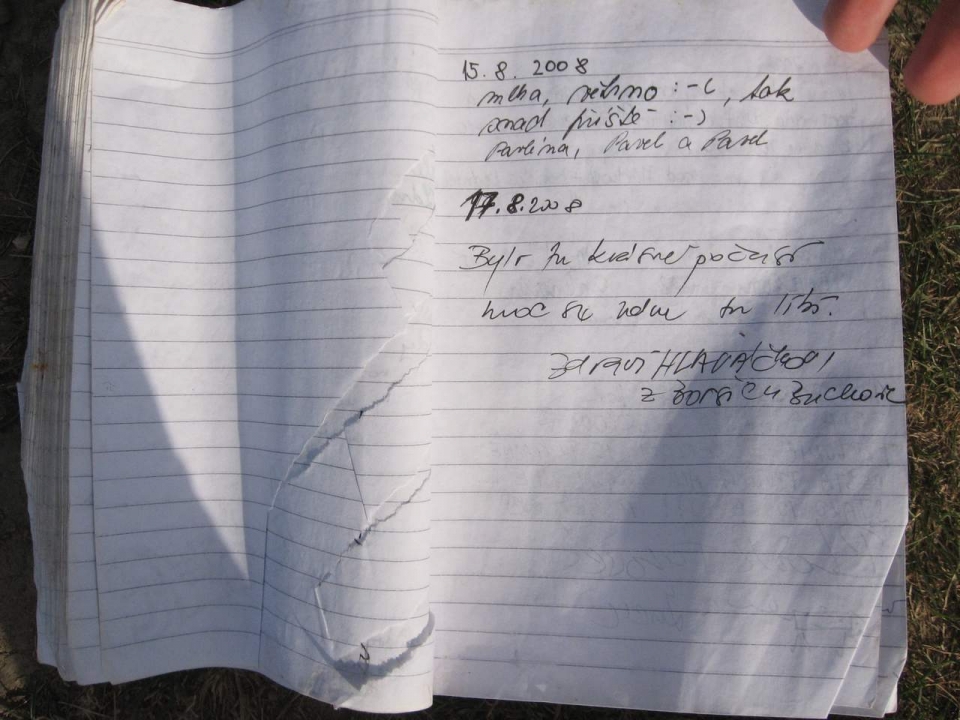 15. 8. 2008
mlha, větrno :-(, tak
snad příště :-)
Pavlína, Pavel a Pavel
17.8.2008
Bylo tu krásné počasí
moc se nám tu líbí.
zdraví HLAVÁČKOVI
z